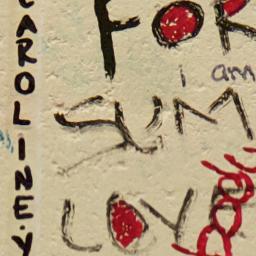 CAROLINE.Y
FOR
i am
SUM
LOVE